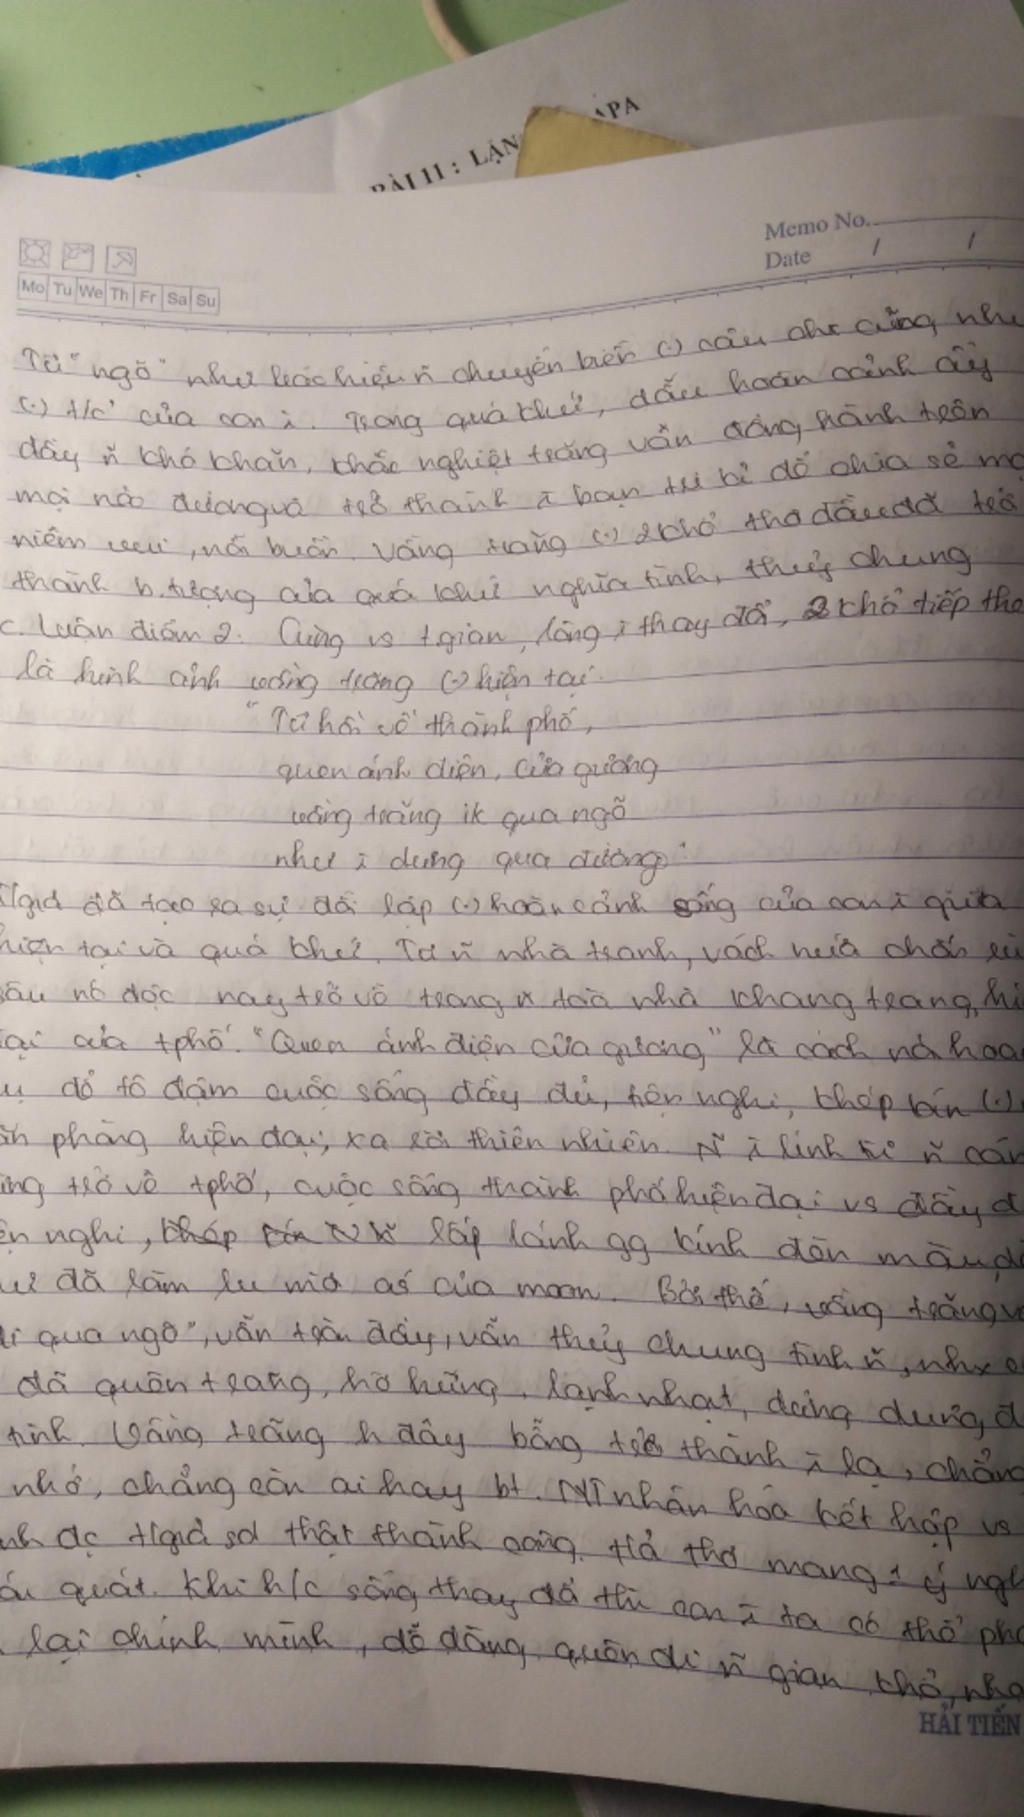 BÀI 11: LẶN ÁPA
Memo No.
Date / /
Mo Tu We Th Fr Sa Su
Từ "ngỡ" như báo hiệu ~ chuyển biến (.) câu chr cũng như
(.) t/c' của con ng. Trong quá khứ, dẫu hoàn cảnh ấy
đầy ~ khó khăn, khắc nghiệt trăng vẫn đồng hành trên
mọi nẻo đường và trở thành bạn tri kỉ để chia sẻ mọ
niềm vui, nỗi buồn. Vầng trăng (.) 2 khổ thơ đầu đã trở
thành b.tượng của quá khứ nghĩa tình, thủy chung
c. Luận điểm 2. Cùng vs t.gian, lòng ng thay đổi, 2 khổ tiếp the
là hình ảnh vầng trăng (.) hiện tại.
"Từ hồi về thành phố,
quen ánh điện, cửa gương
vầng trăng ik qua ngõ
như ng dưng qua đường"
T/giả đã tạo ra sự đối lập (.) hoàn cảnh sống của con ng giữa
hiện tại và quá khứ. Từ ~ nhà tranh, vách nứa chốn rừ
sâu nc độc nay trở về trong ~ toà nhà khang trang, hi
đại của t.phố. "Quen ánh điện cửa gương" là cách nói hoa
ụ để tô đậm cuộc sống đầy đủ, tiện nghi, khép kín (.)
ăn phòng hiện đại, xa rời thiên nhiên. ~ ng lính từ ~ cán
ừng trở về t.phố, cuộc sống thành phố hiện đại vs đầy đ
ện nghi, lấp lánh gg kính đèn màu, đi
ư đã làm lu mờ as của moon. Bởi thế, vầng trăng v
đi qua ngõ", vẫn tròn đầy, vẫn thủy chung tình ~, như c
đã quên trăng, hờ hững, lạnh nhạt, dửng dưng, đ
tình. Vầng trăng h đây bỗng trở thành ng lạ, chẳng
nhớ, chẳng còn ai hay bt. NT nhân hóa kết hợp vs
nh đc t/giả sd thật thành công. Hả thơ mang 1 ý ngh
ái quát. Khi h/c sống thay đổi thì con ng ta có thể phả
lại chính mình, dễ dàng quên đi ~ gian khổ, nhọ
HẢI TIẾN